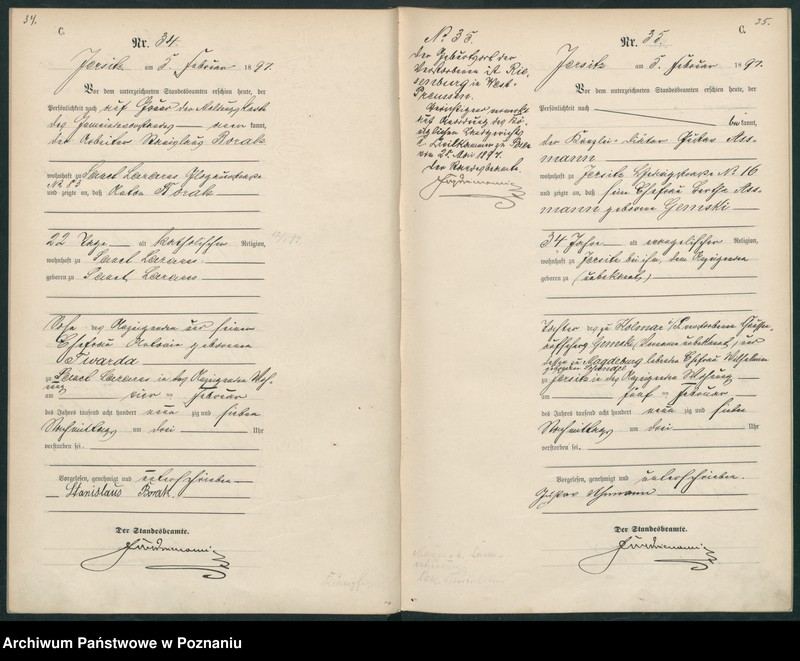 34.
C.
Nr. 34.
Jersitz am 5. Februar 1897.
Vor dem unterzeichneten Standesbeamten erschien heute, der
Persönlichkeit nach auf Grund der Meldung
des Gemeindevorstandes kannt,
der Arbeiter Stanislaus Borak
wohnhaft zu Sanct Lazarus Glogauerstraße
No 83
und zeigte an, daß Anton Borak
22 Tage alt katholischer Religion,
wohnhaft zu Sanct Lazarus
geboren zu Sanct Lazarus
Sohn des Anzeigenden und seiner
Ehefrau Antonie geborenen
Twarda
zu Sanct Lazarus in des Anzeigenden Woh-
nung
am Februar
des Jahres tausend acht hundert neun zig und sieben
Nachmittags um drei Uhr
verstorben sei.
Vorgelesen, genehmigt und unterschrieben
Stanislaus Borak.
Der Standesbeamte.
No 35.
Der Geburtsort der
Verstorbenen ist Rie-
senburg in West-
Preussen.
Eingetragen
auf Anordnung des Kö-
niglichen Landgerichts
Civilkammer zu Posen
vom 22. Mai 1897.
Der Standesbeamte.
35.
C.
Nr. 35.
Jersitz am 5. Februar 1897.
Vor dem unterzeichneten Standesbeamten erschien heute, der
Persönlichkeit nach
bekannt,
der Kanzlei- Gustav Ass-
mann
wohnhaft zu Jersitz No 16
und zeigte an, daß seine Ehefrau Bertha Ass-
mann geborene Gemski
34 Jahre alt evangelischer Religion,
wohnhaft zu Jersitz bei ihm, dem Anzeigenden
geboren zu (unbekannt)
Tochter des zu Kolmar verstorbenen
Gemski, Vorname unbekannt, und
dessen zu Magdeburg lebenden Ehefrau Wilhelmine
geborenen
zu Jersitz in des Anzeigenden Wohnung
am fünften Februar
des Jahres tausend acht hundert neun zig und sieben
Nachmittags um drei Uhr
verstorben sei.
Vorgelesen, genehmigt und unterschrieben.
Gustav Assmann
Der Standesbeamte.
Archiwum Państwowe w Poznaniu